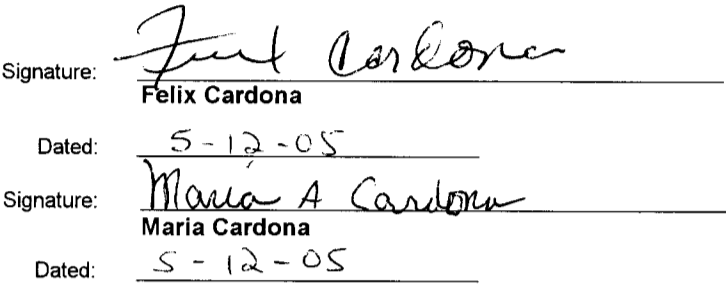 Signature: Felix Cardona
Felix Cardona
Dated: 5-12-05
Signature: Maria A Cardona
Maria Cardona
Dated: 5-12-05